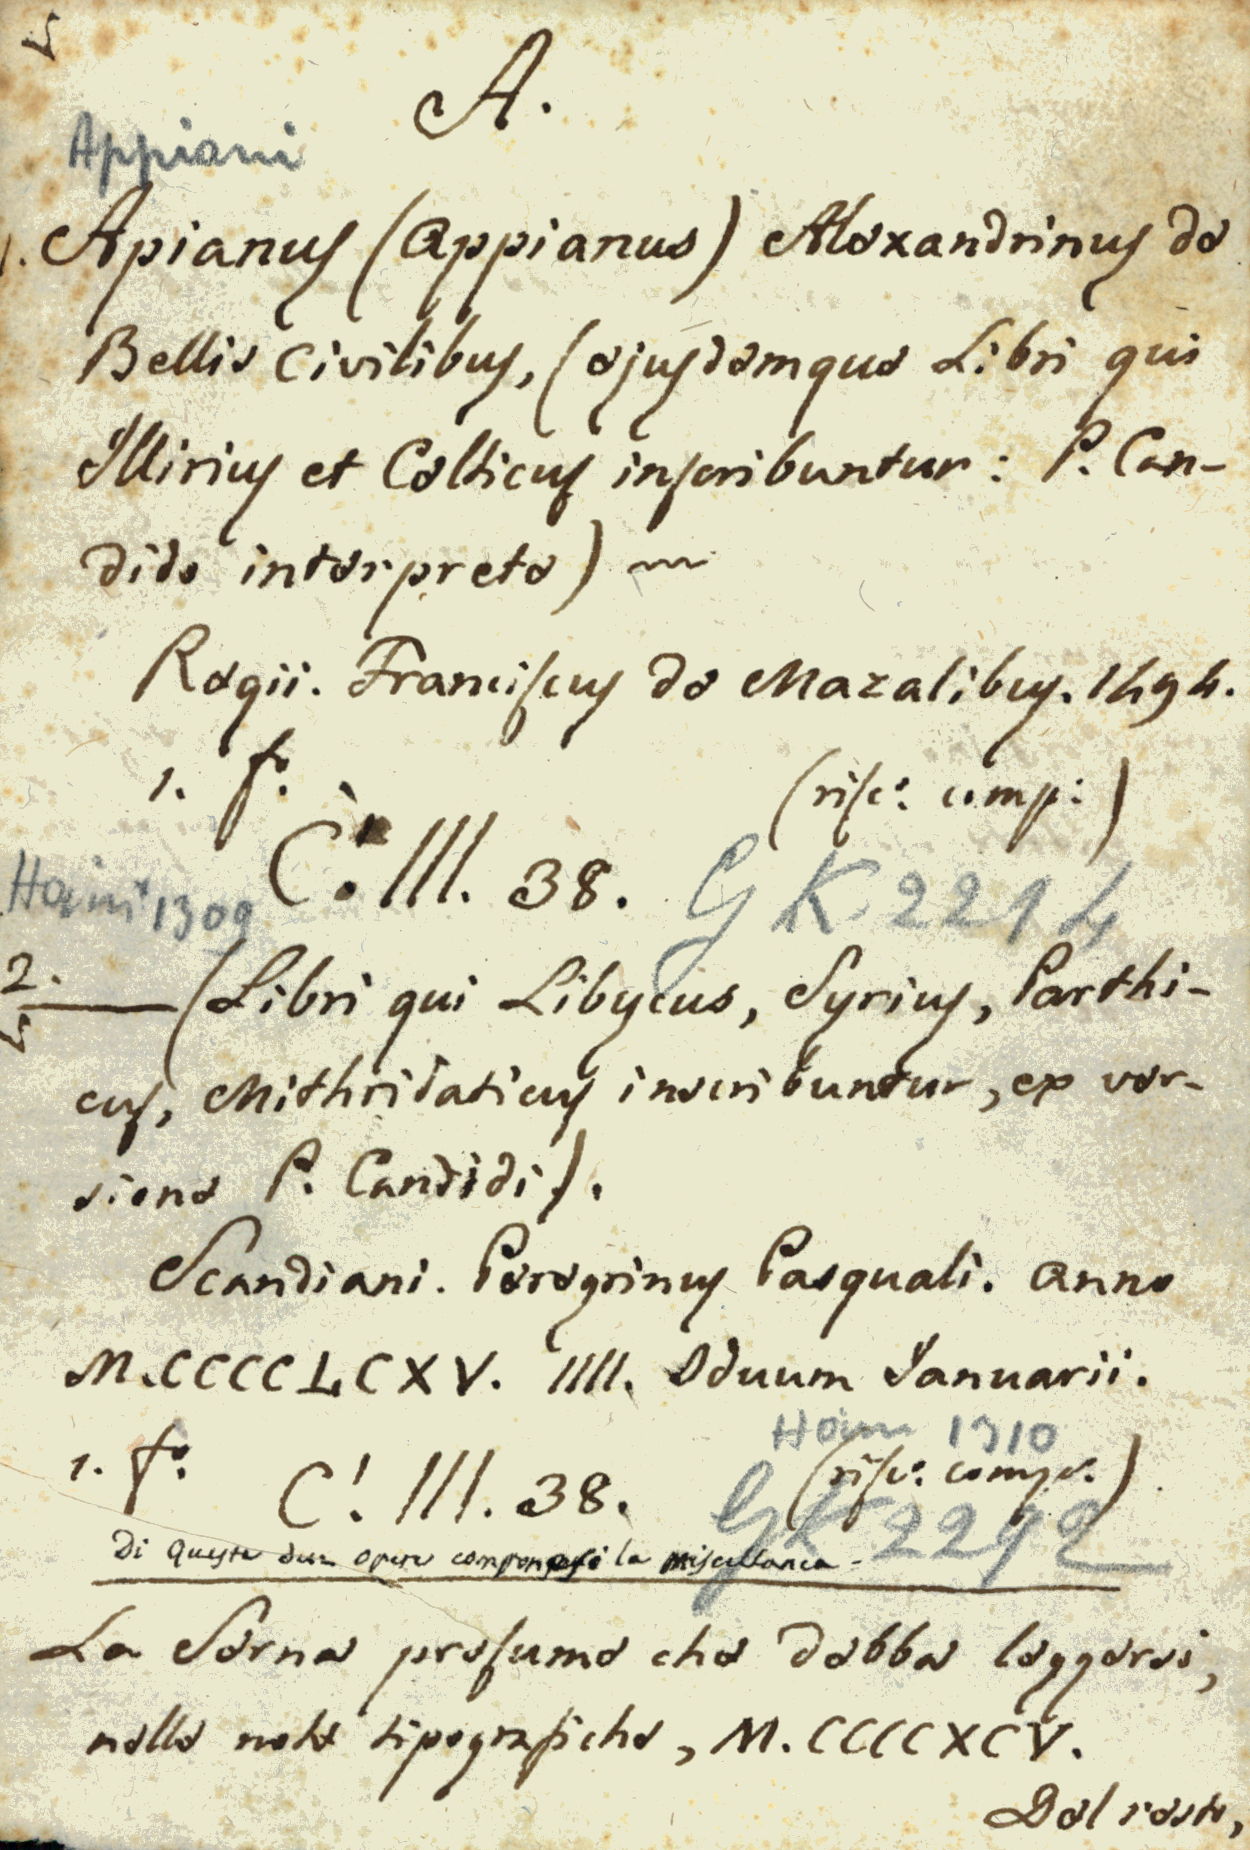 A.
Appiani
1. Apianus (Appianus) Alexandrinus de
Bellis Civilibus, (ejusdemque Libri qui
Illirius et Celticus inscribuntur: P. Can-
dido interprete)
Regii. Franciscus de Mazalibus. 1494.
1. fo. (risc. comp:)
C. III. 38. GK 2294
Hain 1309
2. — (Libri qui Libycus, Syrius, Parthi-
cus, Mithridaticus inscribuntur, ex ver-
sione P. Candidi).
Scandiani. Peregrinus Pasquali. Anno
M.CCCCLCXV. IIII. Iduum Januarii.
Hain 1310
1. fo. C! III. 38. (risc. comp.)
GK 2292
Di queste due opere componesi la miscellanea.
La Serna presume che debba leggersi,
nelle note tipografiche, M.CCCCXCV.
Del resto,